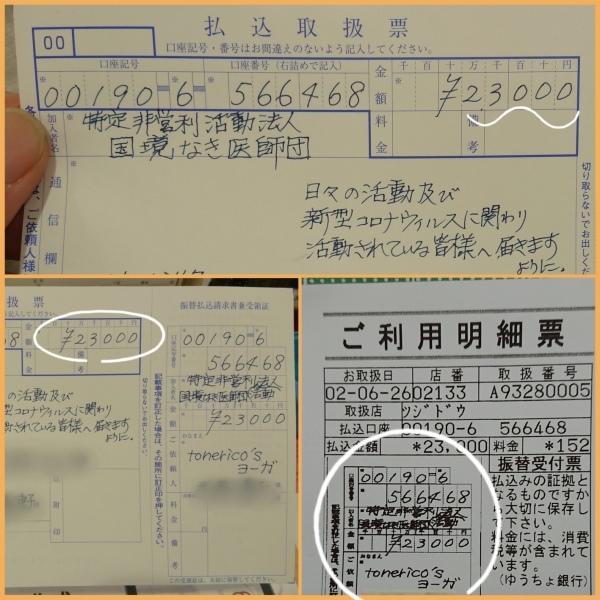 払込取扱票
00
口座記号・番号はお間違えのないよう記入してください。
口座記号
口座番号(右詰めで記入)
金額
千百十万千百十円
00190=6
566468
¥23000
加入者名
特定非営利活動法人
国境なき医師団
料金
備考
通信欄
ご依頼人様
日々の活動及び
新型コロナウィルスに関わり
活動されている皆様へ届きます
ように。
切り取らないでお出しください
取扱票
¥23000
料金
備考
振替払込請求書兼受領証
00190=6
566468
特定非営利法人
国境なき医師団
¥23000
tonerico's
ヨーガ
おなまえ
ご依頼人
料金
備考
日附印
切り取らないでお出しください。
記載事項を訂正した場合は、その箇所に訂正印を押してください。
この受領証は、大切に保管してください。
ご利用明細票
お取扱日 店番 取扱番号
02-06-26 02133 A93280005
取扱店 ツジドウ
払込口座 00190-6 566468
払込金額 *23,000 料金 *152
00190=6
566468
特定非営利法人
¥23000
tonerico's
ヨーガ
振替受付票
払込みの証拠と
なるものですか
ら大切に保存し
て下さい。
料金には、消費
税等が含まれて
います。
(ゆうちょ銀行)